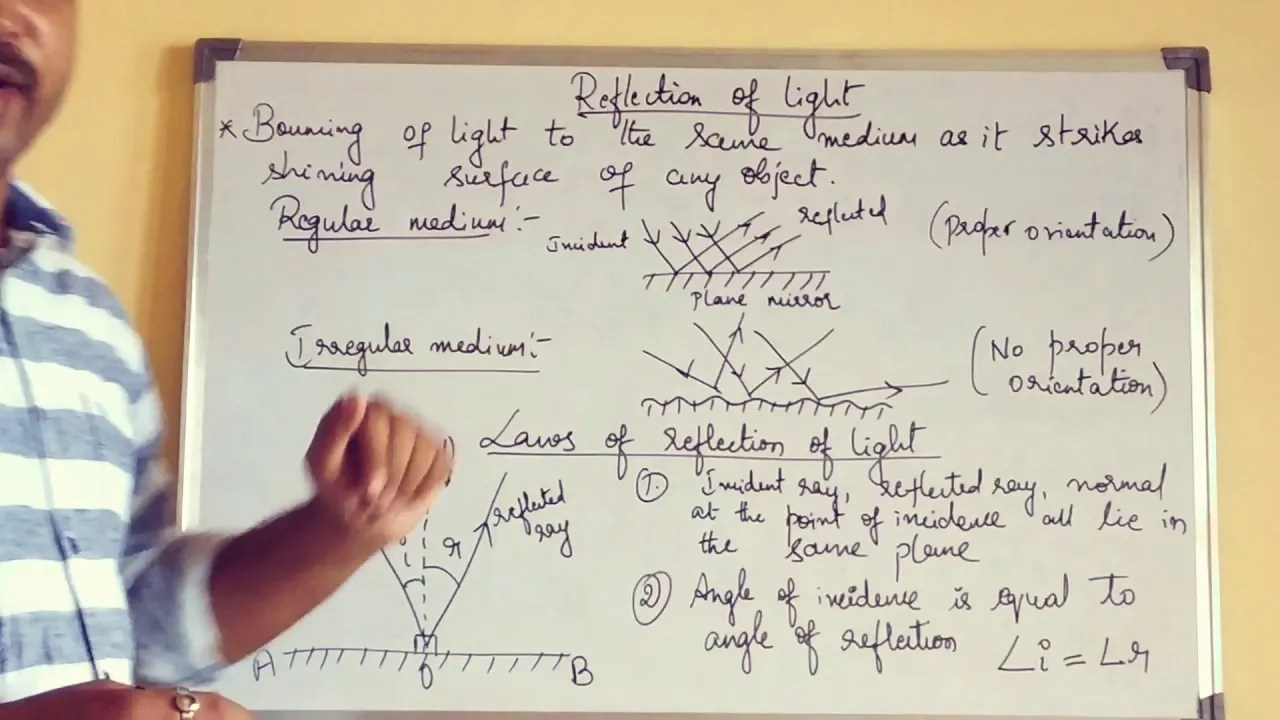 Reflection of light
* Bouncing of light to the same medium as it strikes
shining surface of any object.
Regular medium:-
Incident
reflected
(Proper orientation)
Plane mirror
Irregular medium:-
(No proper
orientation)
Laws of reflection of light
①. Incident ray, reflected ray, normal
at the point of incidence all lie in
the same plane
reflected
ray
i
r
② Angle of incidence is equal to
angle of reflection
∠i = ∠r
A
O
B